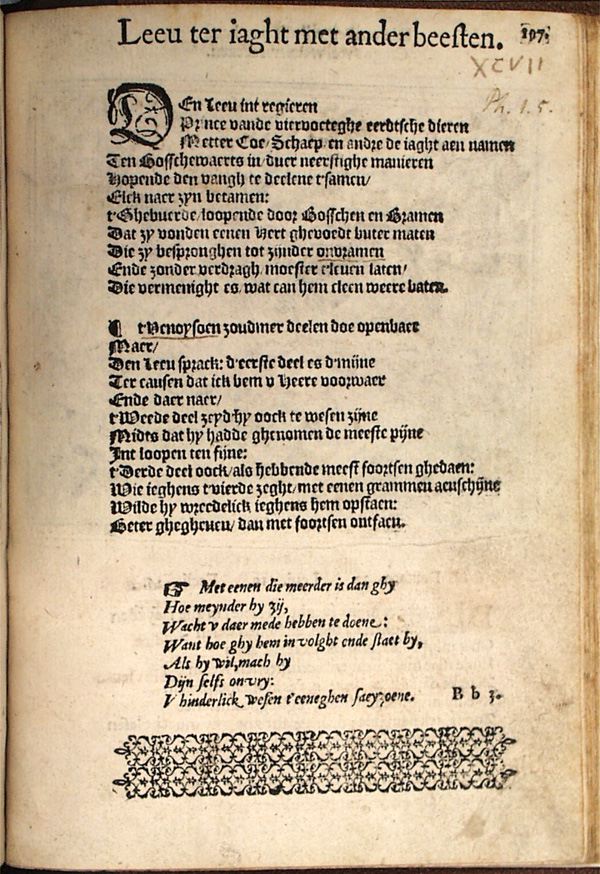 Leeu ter iaght met ander beesten. 197.
XCVII
Ph. 1. 5.
DEn Leeu int regieren
Prince vande viervoeteghe eerdtsche dieren
Metter Coe/Schaep/en andre de iaght aen namen
Ten Bosschewaerts in/duer neerstighe manieren
Hopende den vangh te deelene t'samen/
Elck naer zyn betamen:
t'Ghebuerde/loopende door Bosschen en Bramen
Dat zy vonden eenen Hert ghevoedt buter maten
Die zy bespronghen tot zijnder onvramen
Ende zonder verdragh/moester t'leven laten/
Die vermenight es/wat can hem cleen weere baten.
¶ t'Venoysoen zoudmer deelen doe openbaer
Maer/
Den Leeu sprack: d'eerste deel es d'mijne
Ter causen dat ick bem v Heere voorwaer
Ende daer naer/
t'Weede deel zeyd'hy oock te wesen zijne
Midts dat hy hadde ghenomen de meeste pijne
Int loopen ten fijne:
t'Derde deel oock/als hebbende meest foortsen ghedaen:
Wie ieghens t'vierde zeght/met eenen grammen aenschijne
Wilde hy wreedelick ieghens hem opstaen:
Beter ghegheven/dan met foortsen ontfaen.
☞ Met eenen die meerder is dan ghy
Hoe meynder hy zij,
Wacht v daer mede hebben te doene:
Want hoe ghy hem in volght ende staet by,
Als hy wil, mach hy
Dijn selfs onvry:
V hinderlick wesen t'eeneghen saeyzoene. B b 3.